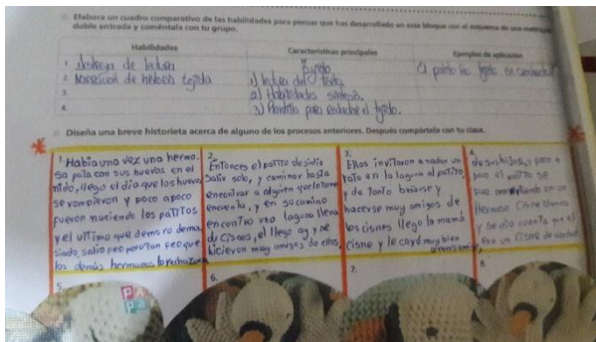 Elabora un cuadro comparativo de las habilidades para pensar que has desarrollado en este bloque con el esquema de una matriz de
doble entrada y coméntala con tu grupo.
Habilidades
Características principales
Ejemplos de aplicación
1. destreza de
2. Narración de historia tejida
3.
4.
Tejido
1) lectura del texto
2) Habilidades
3) Plantilla para el tejido.
El patito feo tejido en
Diseña una breve historieta acerca de alguno de los procesos anteriores. Después compártela con tu clase.
1. Habia una vez una hermo-
sa pata con sus huevos en el
nido, llego el dia que los huevos
se rompieron y poco apoco
fueron naciendo los patitos
y el ultimo que demoro dema
siado, salio feo pero tan feo que
los demás hermanos lo rechazaron
2.
Entonces el patito desidio
salir solo, y caminar hasta
encontrar a alguien que lo tome
en cuenta, y en su camino
encontro una laguna llena
de cisnes, el llego ay y se
hicieron muy amigos de ellos.
3.
Ellos invitaron a nadar un
rato en la laguna al patito,
y de tanto bañarse y
hacerse muy amigos de
los cisnes llego la mamá
cisne y le cayó muy bien
4.
de sus hijos, y poco a
poco el patito se
fue en un
Hermoso cisne blanco
y se dio cuenta que el
era un cisne de verdad
5.
6.
7.
8.